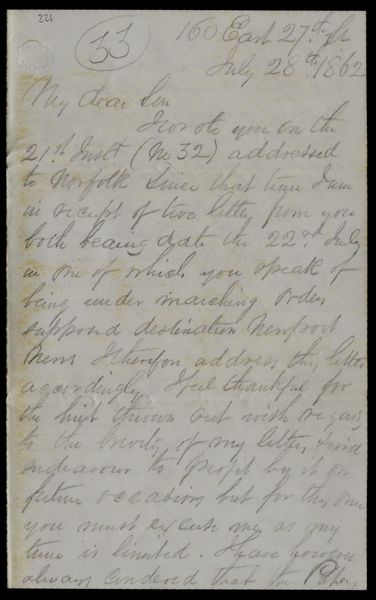 221
33
160 East 27th St
July 28th 1862
My dear Son
I wrote you on the
21st Inst (No 32) addressed
to Norfolk since that time I am
in receipt of two letters from you
both bearing date the 22nd July
in one of which you speak of
being under marching orders
supposed destination Newport
News I therefore address this letter
accordingly. I feel thankful for
the hint thrown out with regard
to the brevity of my letters & will
endeavour to profit by it on
future occasions but for this once
you must excuse me as my
time is limited. I have however
always considered that the Papers